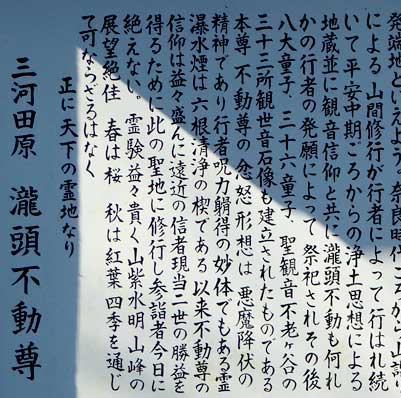 発端地といえよう。奈良時代ころから山諧り
による山間修行が行者によって行はれ続
いて平安中期ごろからの浄土思想による
地蔵並に観音信仰と共に瀧頭不動も何れ
かの行者の発願によって祭祀されその後
八大童子、三十六童子、聖観音不老ヶ谷の
三十三所観世音石像も建立されたものである
本尊不動尊の忿怒形想は悪魔降伏の
精神であり行者呪力躰得の妙体でもある霊
瀑水煙は六根清浄の楔である以来不動尊の
信仰は益々盛んに遠近の信者現当二世の勝益を
得るために此の聖地に修行し参詣者今日に
絶えない。霊験益々貴く山紫水明山峰の
展望絶佳 春は桜 秋は紅葉四季を通じ
て可ならざるはなく
正に天下の霊地なり
三河田原 瀧頭不動尊